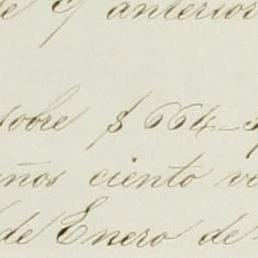 de anteriores
sobre $ 664-
años ciento
de Enero de